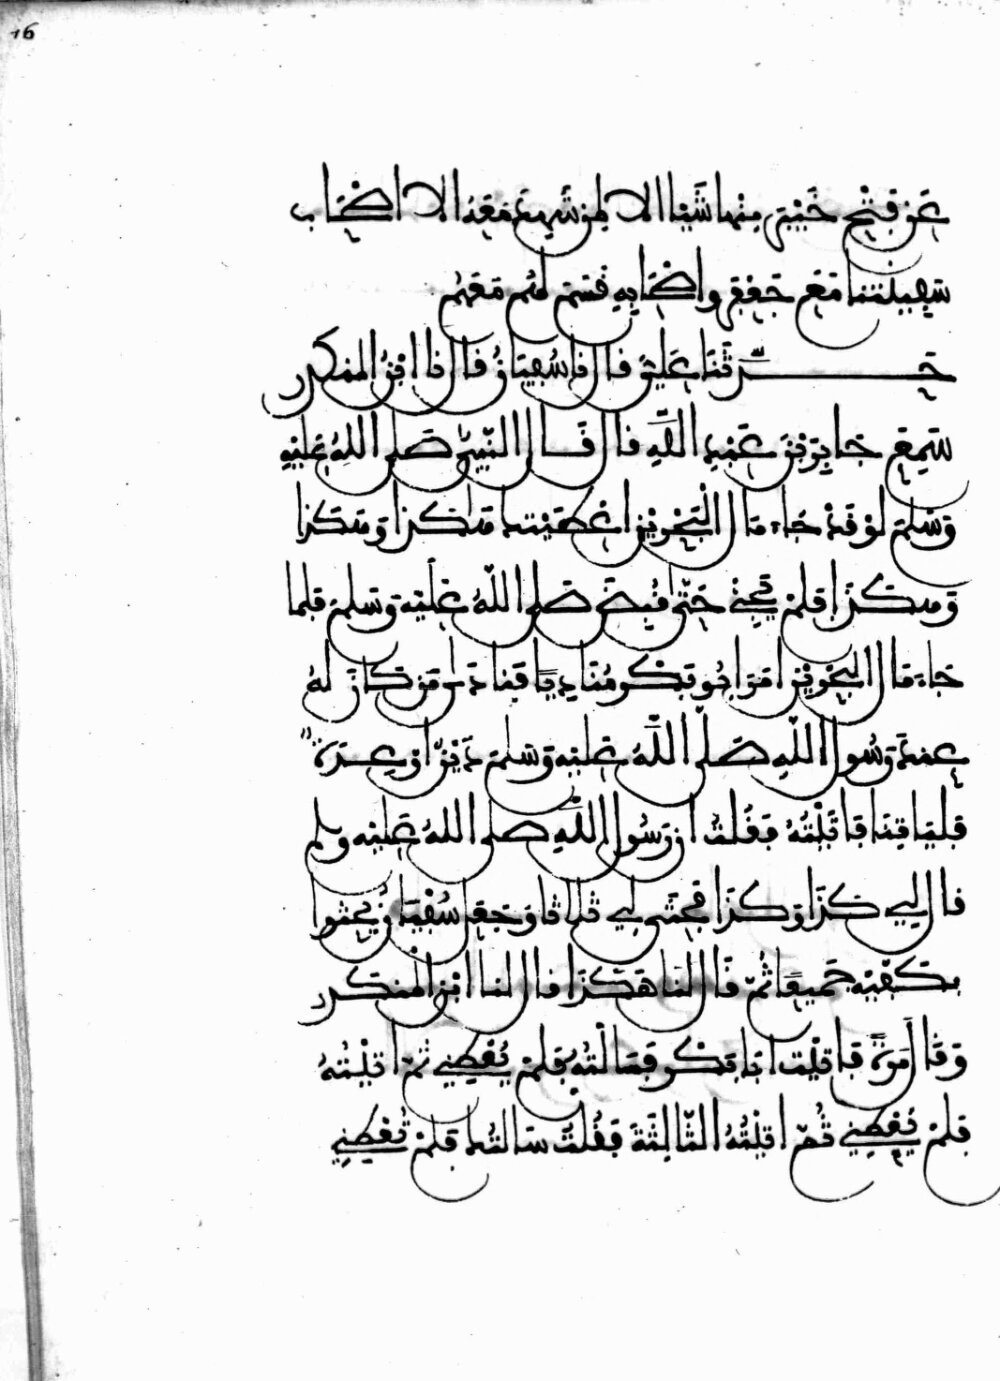 16
عَن فَتْحِ خَيْبَرَ مِنْهَا شَيْئًا الا لِمَن شَهِدَ مَعَهُ الا اصْحَابَ
سَفِينَتِنَا مَعَ جَعْفَرٍ وَاصْحَابِهِ قَسَمَ لَهُم مَعَهُمْ
حَدَّثَنَا عَلِيٌّ قال نا سُفْيَانُ قال نا ابْنُ المنكدر
سَمِعَ جَابِرَ بْنَ عَبْدِ اللَّهِ قال قَال النَّبِيُّ صَلى اللهُ عَلَيْهِ
وَسَلمَ لَوْ قَدْ جَاءَ مَال الْبَحْرَيْنِ اعْطَيْتُكَ هَكَذَا وَهَكَذَا
وَهَكَذَا فلمْ يَجِئْ حَتَّى قُبِضَ صَلى اللَّهُ عَلَيْهِ وَسلمَ فلما
جَاءَ مَال الْبَحْرَيْنِ امَرَ ابُو بَكْرٍ مُنَادِيًا فَنَادَى مَن كَانَ لَهُ
عِنْدَ رَسُولِ اللهِ صَلى اللَّهُ عَلَيْهِ وَسَلمَ دَيْنٌ اوْ عِدَةٌ
فَلْيَاتِنَا فَاتَيْتُهُ فَقُلْتُ ان رَسُولَ اللَّهِ صلى اللهُ عَلَيْهِ وسلم
قال لِي كَذَا وَكَذَا فَحَثَى لِي ثَلَاثًا وَجَعَلَ سُفْيَانُ يَحْثُوا
بِكَفَّيْهِ جَمِيعًا ثُمَّ قَال لَنَا هَكَذَا قال لنا ابْنُ المنْكَدر
وَقَال مَرَّةً فَاتَيْتُ ابَا بَكْرٍ فَسَالْتُهُ فَلَمْ يُعْطِنِي ثُمَّ اتَيْتُهُ
فلمْ يُعْطِنِي ثُمَّ اتَيْتُهُ الثَّالِثَةَ فَقُلْتُ سَالتُكَ فلمْ تُعْطِنِي